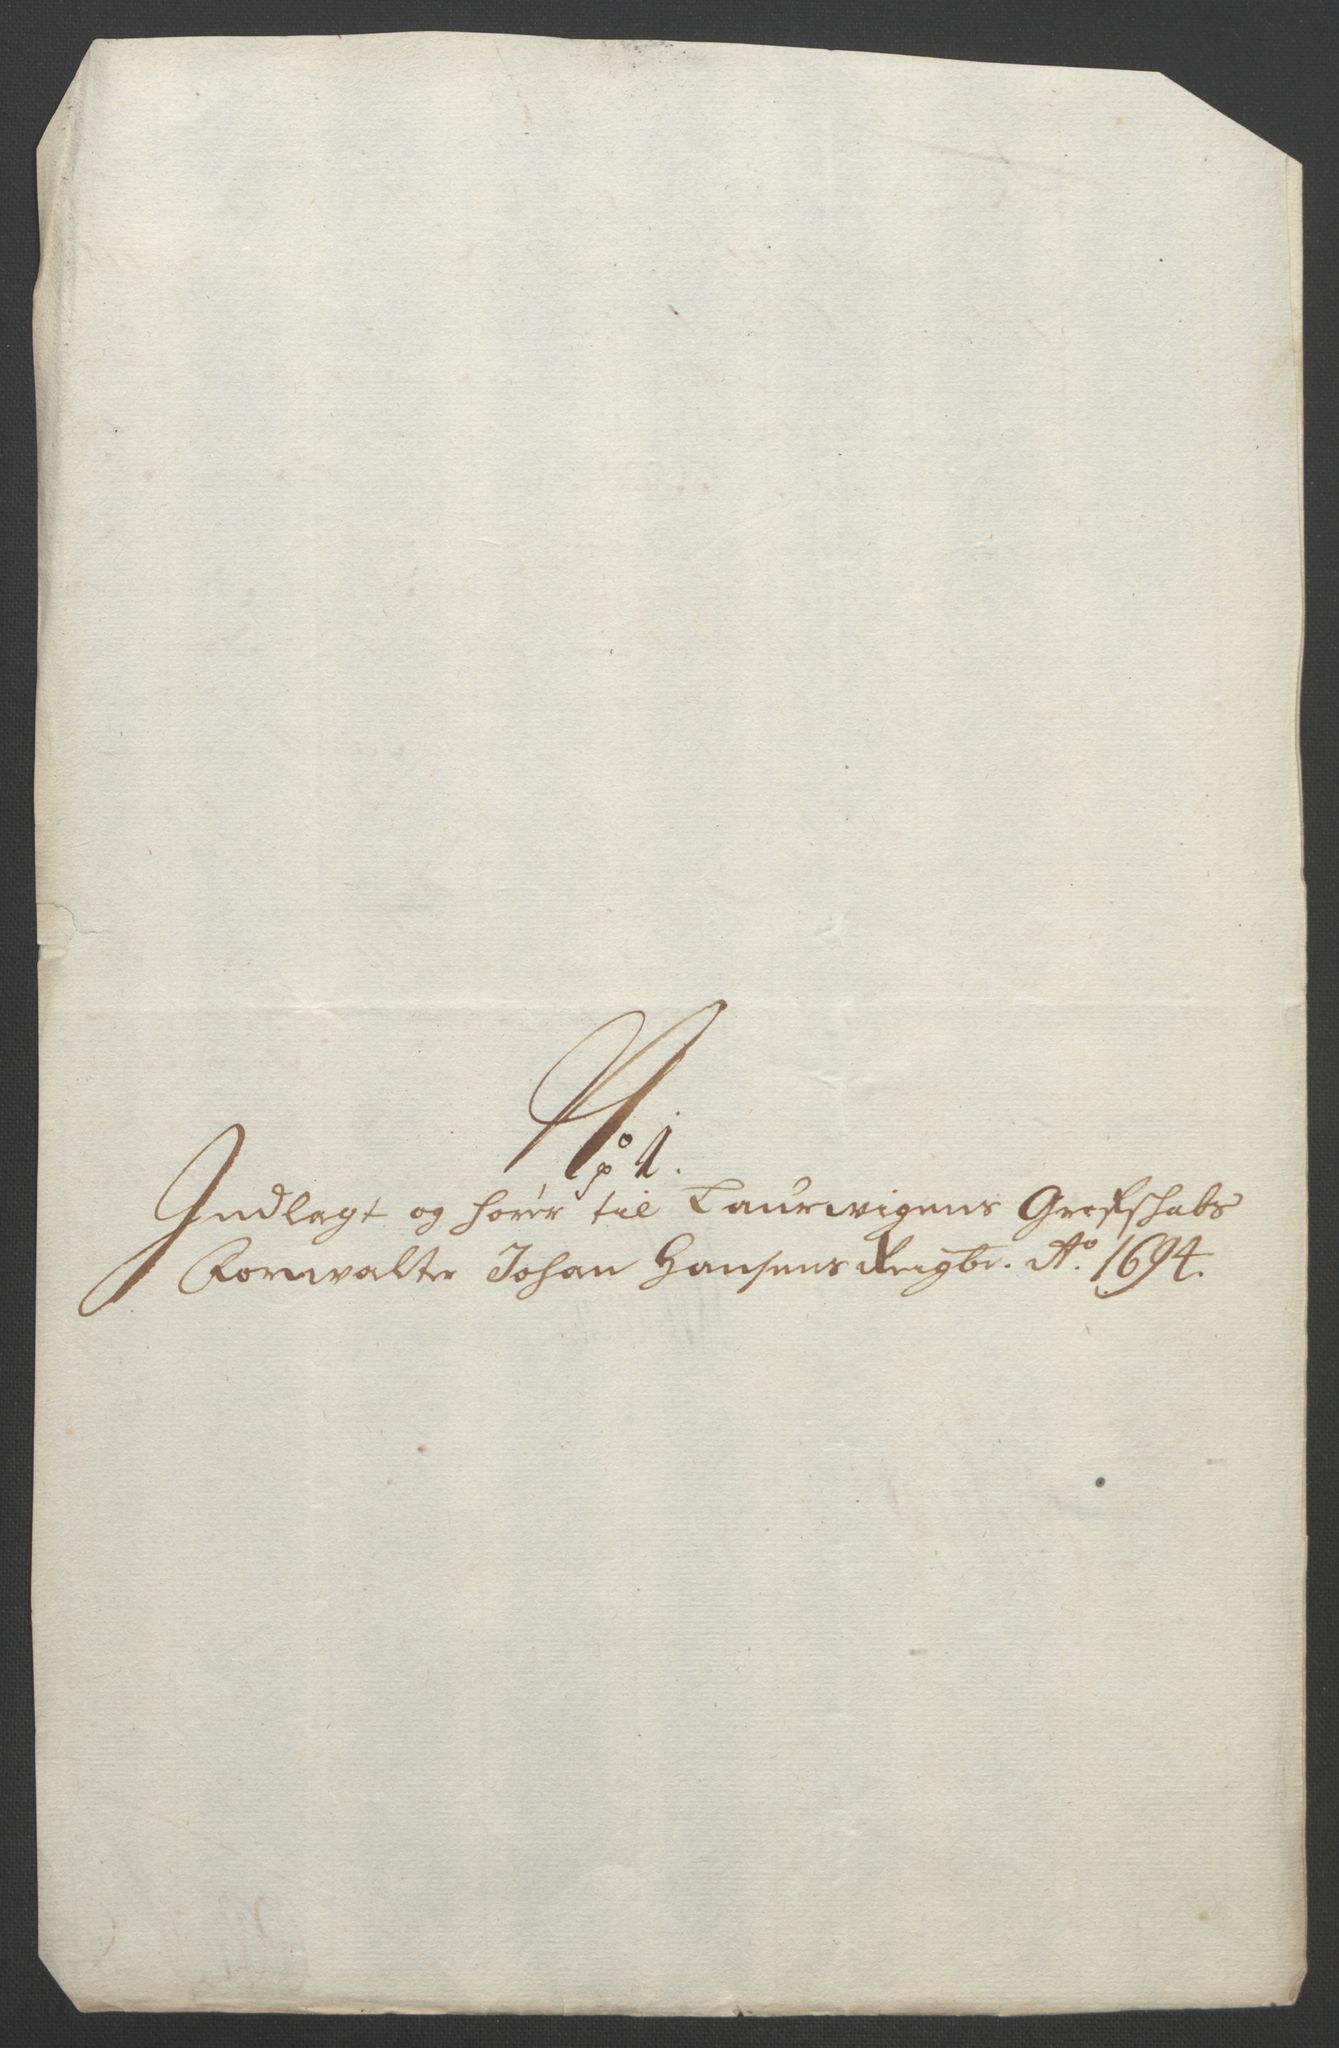 No 1.
Indlagt og hörer til Laurwigens Grefschabs
Forwalter Johan Hansens Regbr. Ao. 1694.